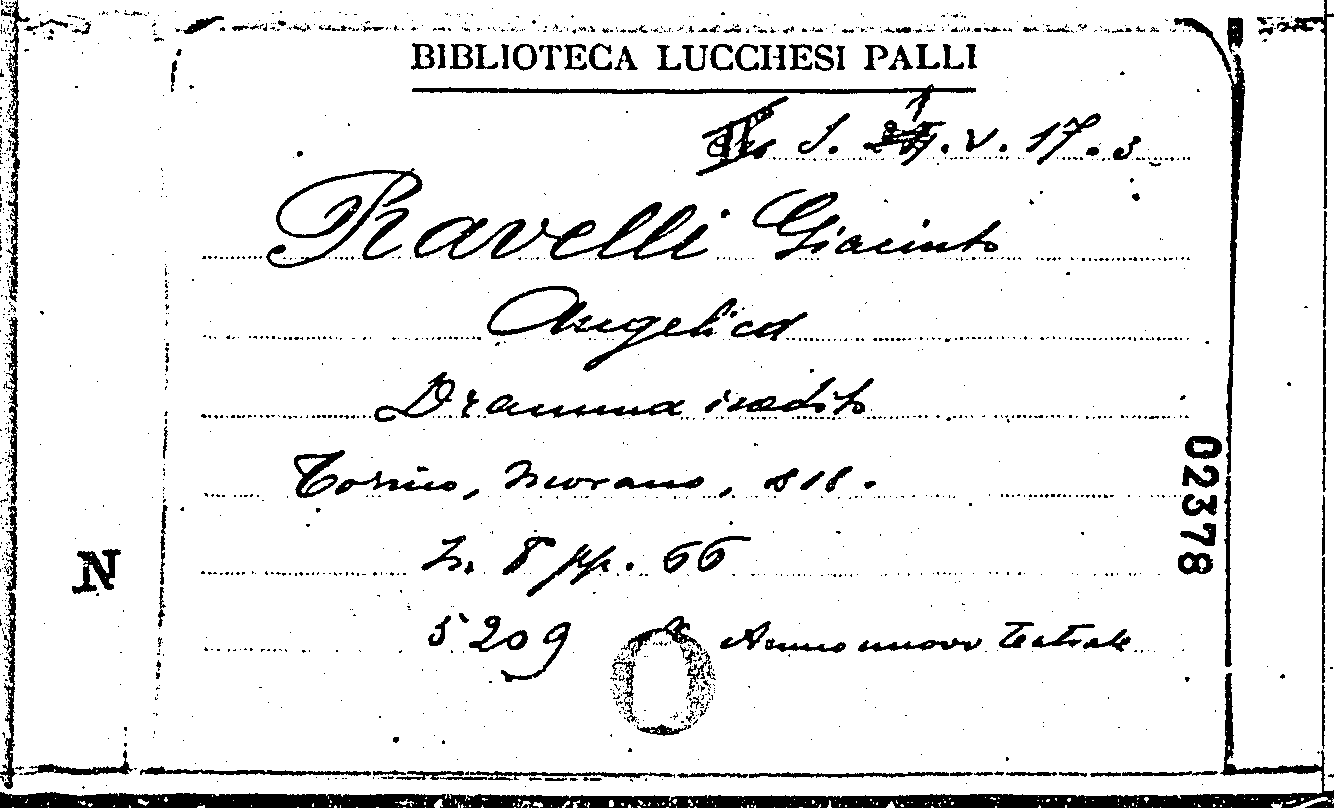 BIBLIOTECA LUCCHESI PALLI
S. V. 17. 3
Ravelli Giacinto
Angelica
Dramma inedito
Torino, Morano, 818.
In 8 pp. 66
5209 Anno nuovo teatrale
N
02378